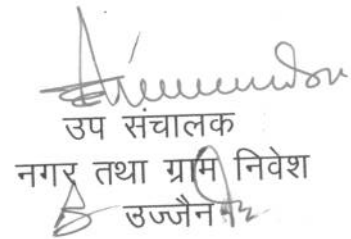 उप संचालक
नगर तथा ग्राम निवेश
उज्जैन